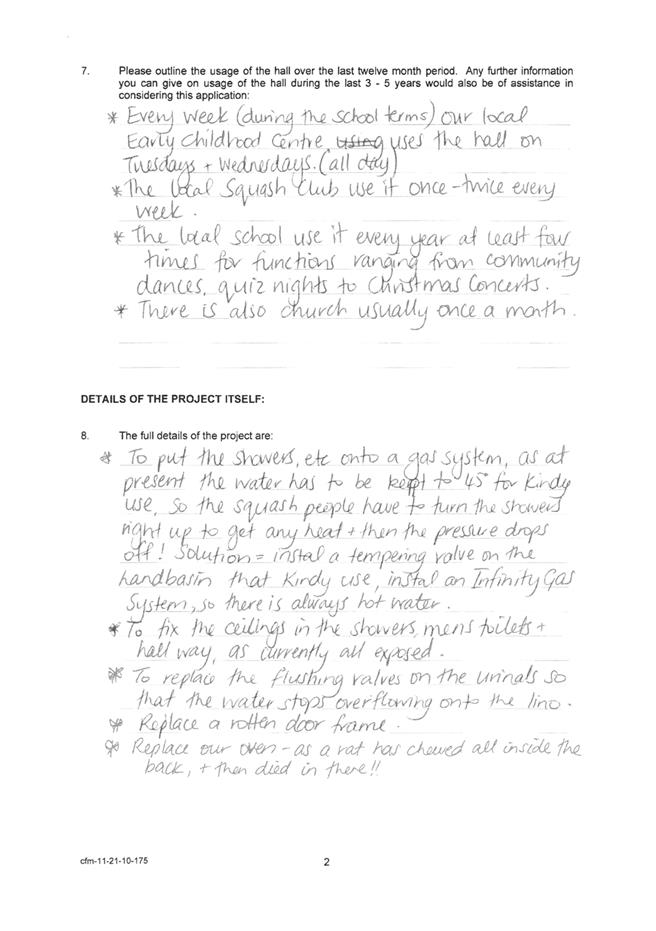 7. Please outline the usage of the hall over the last twelve month period. Any further information
you can give on usage of the hall during the last 3 - 5 years would also be of assistance in
considering this application:
* Every week (during the school terms) our local
Early Childhood Centre, using uses the hall on
Tuesdays + Wednesdays. (all day)
* The local Squash Club use it once - twice every
week.
* The local school use it every year at least few
times for functions ranging from community
dances, quiz nights to Christmas Concerts.
* There is also church usually once a month.
DETAILS OF THE PROJECT ITSELF:
8. The full details of the project are:
* To put the showers, etc onto a gas system, as at
present the water has to be kept to 45° for Kindy
use, so the squash people have to turn the showers
right up to get any heat + then the pressure drops
off! Solution = instal a tempering valve on the
handbasin that Kindy use, instal an Infinity Gas
System, so there is always hot water.
* To fix the ceilings in the showers, mens toilets +
hall way, as currently all exposed.
* To replace the flushing valves on the urinals so
that the water stops overflowing onto the lino.
* Replace a rotten door frame.
* Replace our oven - as a rat has chewed all inside the
back, + then died in there!!
cfm-11-21-10-175
2